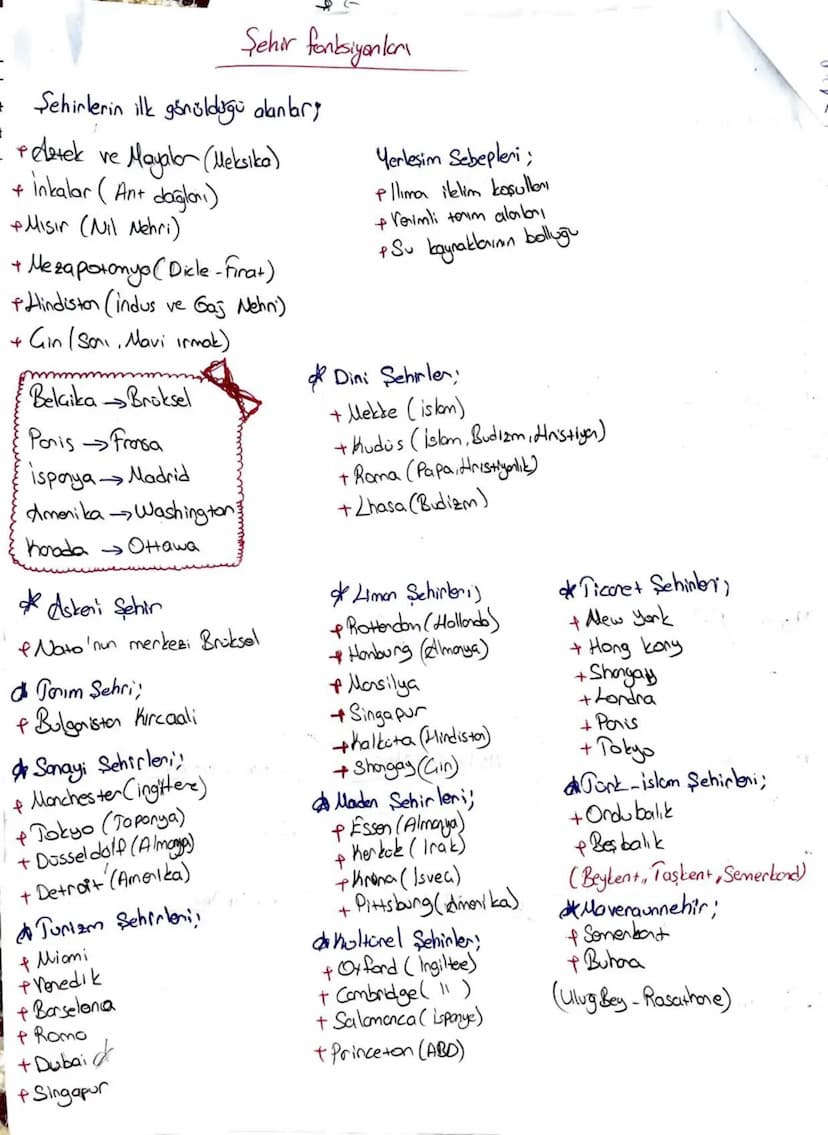 Şehir fonksiyonları
Şehirlerin ilk görüldüğü alanlar;
+ Aztek ve Mayalar (Meksika)
+ İnkalar (Ant dağları)
+ Mısır (Nil Nehri)
+ Mezapotamya (Dicle-Fırat)
+ Hindistan (İndus ve Gaj Nehri)
+ Çin (Sarı, Mavi ırmak)
Yerleşim Sebepleri;
+ Ilıma iklim koşulları
+ Verimli tarım alanları
+ Su kaynaklarının bolluğu
Belçika → Brüksel
Paris → Fransa
İspanya → Madrid
Amerika → Washington
Kanada → Ottawa
* Dini Şehirler;
+ Mekke (islam)
+ Kudüs (İslam, Budizm, Hristiyan)
+ Roma (Papa, Hristiyanlık)
+ Lhasa (Budizm)
* Askeri Şehir
+ Nato'nun merkezi Brüksel
* Tarım Şehri;
+ Bulgaristan Kırcaali
* Sanayi Şehirleri;
+ Manchester (ingiltere)
+ Tokyo (Japonya)
+ Düsseldolf (Almanya)
+ Detroit (Amerika)
* Turizm Şehirleri;
+ Miami
+ Venedik
+ Barselona
+ Roma
+ Dubai *
+ Singapur
* Liman Şehirleri;
+ Rotterdam (Hollanda)
+ Hamburg (Almanya)
+ Marsilya
+ Singapur
+ Kalküta (Hindistan)
+ Shangay (Çin)
* Maden Şehirleri;
+ Essen (Almanya)
+ Kerkük (Irak)
+ Krona (İsveç)
+ Pittsburg (Amerika)
* Kültürel Şehirler;
+ Oxford (İngiltee)
+ Cambridge ( " )
+ Salamanca (ispanye)
+ Princeton (ABD)
* Ticaret Şehirleri;
+ New york
+ Hong kong
+ Shangay
+ Londra
+ Paris
+ Tokyo
* Türk-islam Şehirleri;
+ Ordu balık
+ Beş balık
(Beykent, Taşkent, Semerkand)
* Maveraunnehir;
+ Semerkant
+ Buhara
(Uluğ Bey - Rasathane)